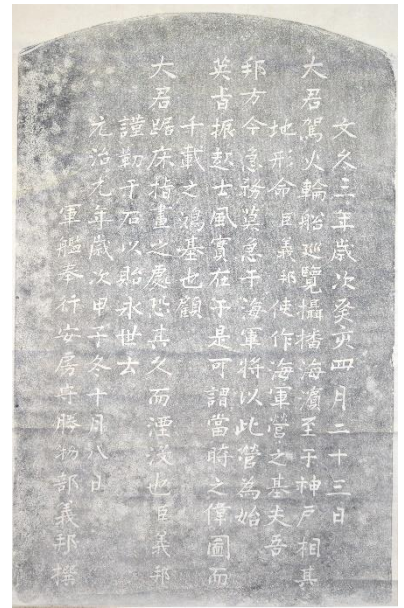 文久三年歳次癸亥四月二十三日
大君駕火輪船巡覧攝播海濱至于神戸相其
地形命臣義邦使作海軍營之基夫吾
邦方今急務莫急于海軍將以此營為始
英旨振起士風實在于是可謂當時之偉圖而
千載之鴻基也顧
大君踞床指畫之處恐其久而湮没也臣義邦
謹勒于石以貽永世云
元治元年歳次甲子冬十月八日
軍艦奉行安房守勝物部義邦撰